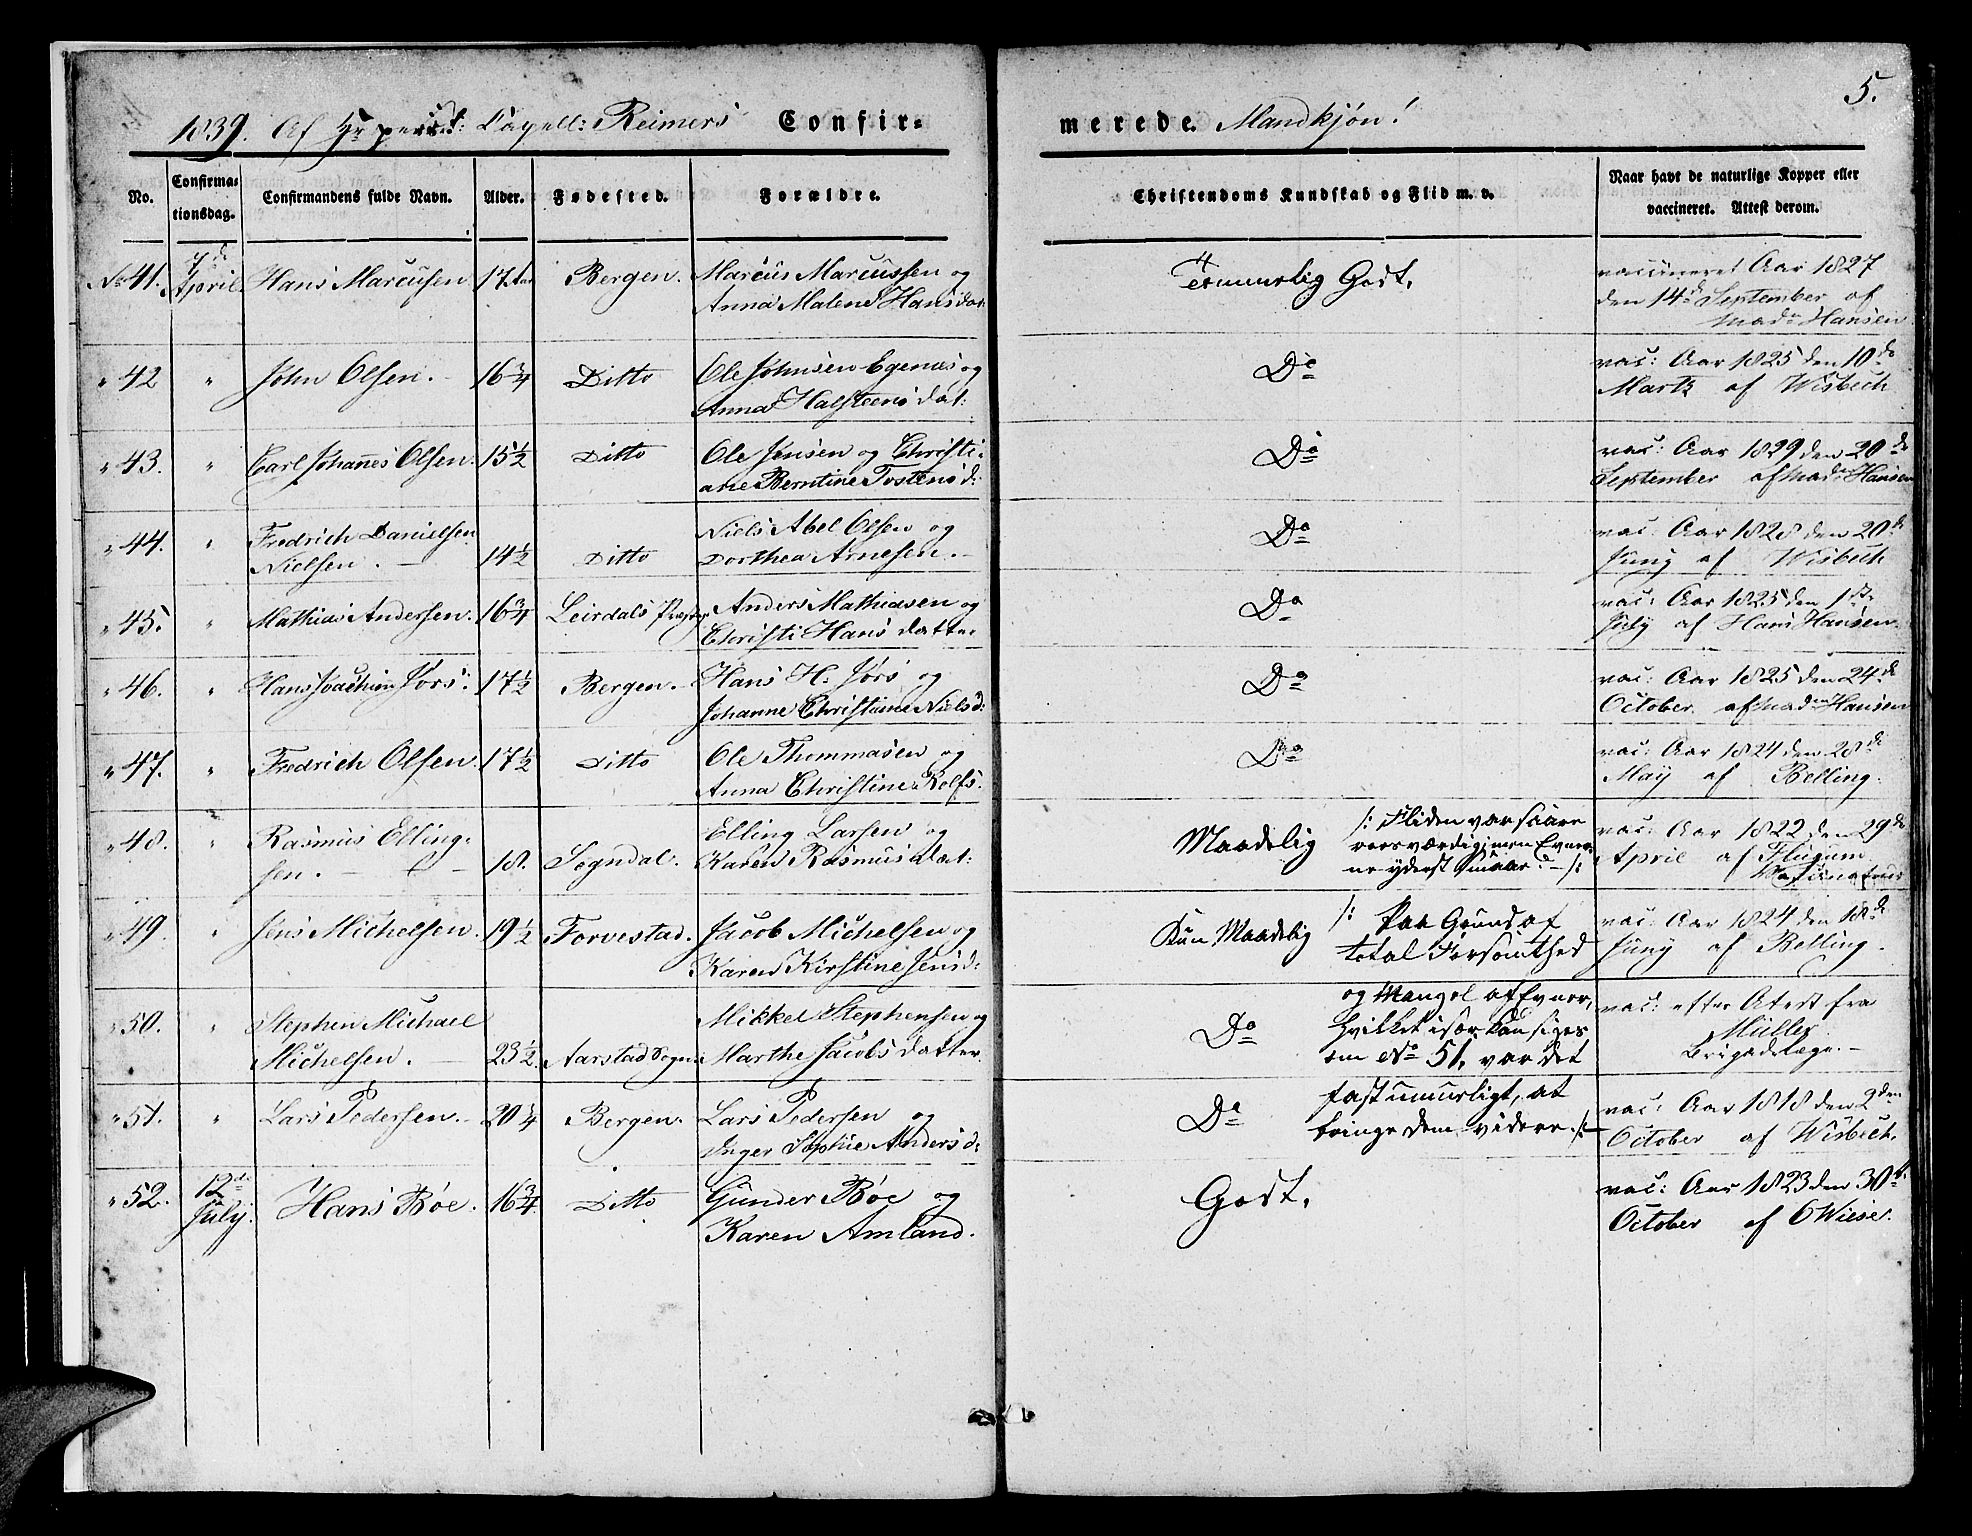 5.
1839. Af Hr Capell: Reimers Confir-
merede. Mandkjøn!
No.
Confirma-
tionsdag.
Confirmandens fulde Navn.
Alder.
Fødested.
Forældre.
Christendoms Kundskab og Flid m. v.
Naar havt de naturlige Kopper eller
vaccineret. Attest derom.
No 41. 7de April Hans Marcusen 17 Aar Bergen. Marcus Marcussen og
Anna Malene Hansdat:
Temmelig Godt.
vaccineret Aar 1827
den 14de September af
Mad: Hansen
" 42 " John Olsen. 16 3/4 Ditto Ole Johnsen Egenæs og
Anna Halsteens dat:
Do
vac: Aar 1825 den 10de
Marts af Wisbech
" 43. " Carl Johannes Olsen. 15 1/2 Ditto Ole Jensen og Christi-
ane Berntine Tostens d:
Do
vac: Aar 1829 den 20de
September af Mad: Hansen
" 44. " Fredrich Danielsen
Nielsen. 14 1/2 Ditto Niels Abel Olsen og
Dorthea Arnesen.
Do
vac: Aar 1828 den 20de
Juny af Wisbech
" 45. " Mathias Andersen. 16 3/4 Leirdals Præstg: Anders Mathiasen og
Christi Hans datter
Do
vac: Aar 1825 den 1ste
July af Hans Hansen.
" 46. " Hans Joachim Jørs. 17 1/2 Bergen. Hans H: Jørs og
Johanne Christine Niels d:
Do
vac: Aar 1825 den 24de
October af Mad: Hansen
" 47. " Fredrich Olsen. 17 1/2 Ditto Ole Thommasen og
Anna Christine Rolfs.
Do
vac: Aar 1824 den 28de
May af Belling.
" 48. " Rasmus Elling-
sen. 18. Sogndal. Elling Larsen og
Karen Rasmus dat:
Maadelig /: Fliden var saare
roesværdig men Evner-
ne yderst smaae :/
vac: Aar 1822 den 29de
April af Flugum
Vaccinateur
" 49. " Jens Michelsen. 19 1/2 Torvestad. Jacob Michelsen og
Karen Kirstine Jens d:
Kun Maadelig /: Paa Grund af
total Forsømthed
vac: Aar 1824 den 18de
Juny af Belling.
" 50. " Stephen Michael
Michelsen. 23 1/2 Aarstad Sogn. Mikkel Stephensen og
Marthe Jacobs datter
Do og Mangel af Evner,
hvilket især kan siges
om No 51, var det
vac: efter Atest fra
Müller
Brigadelæge.
" 51. " Lars Pedersen. 20 1/4 Bergen. Lars Pedersen og
Inger Sophie Anders d:
Do fast umueligt, at
bringe dem videre :/
vac: Aar 1818 den 2den
October af Wisbech.
" 52. 12de July. Hans Bøe. 16 3/4 Ditto Gunder Bøe og
Karen Amland.
Godt.
vac: Aar 1823 den 30te
October af Wiese.